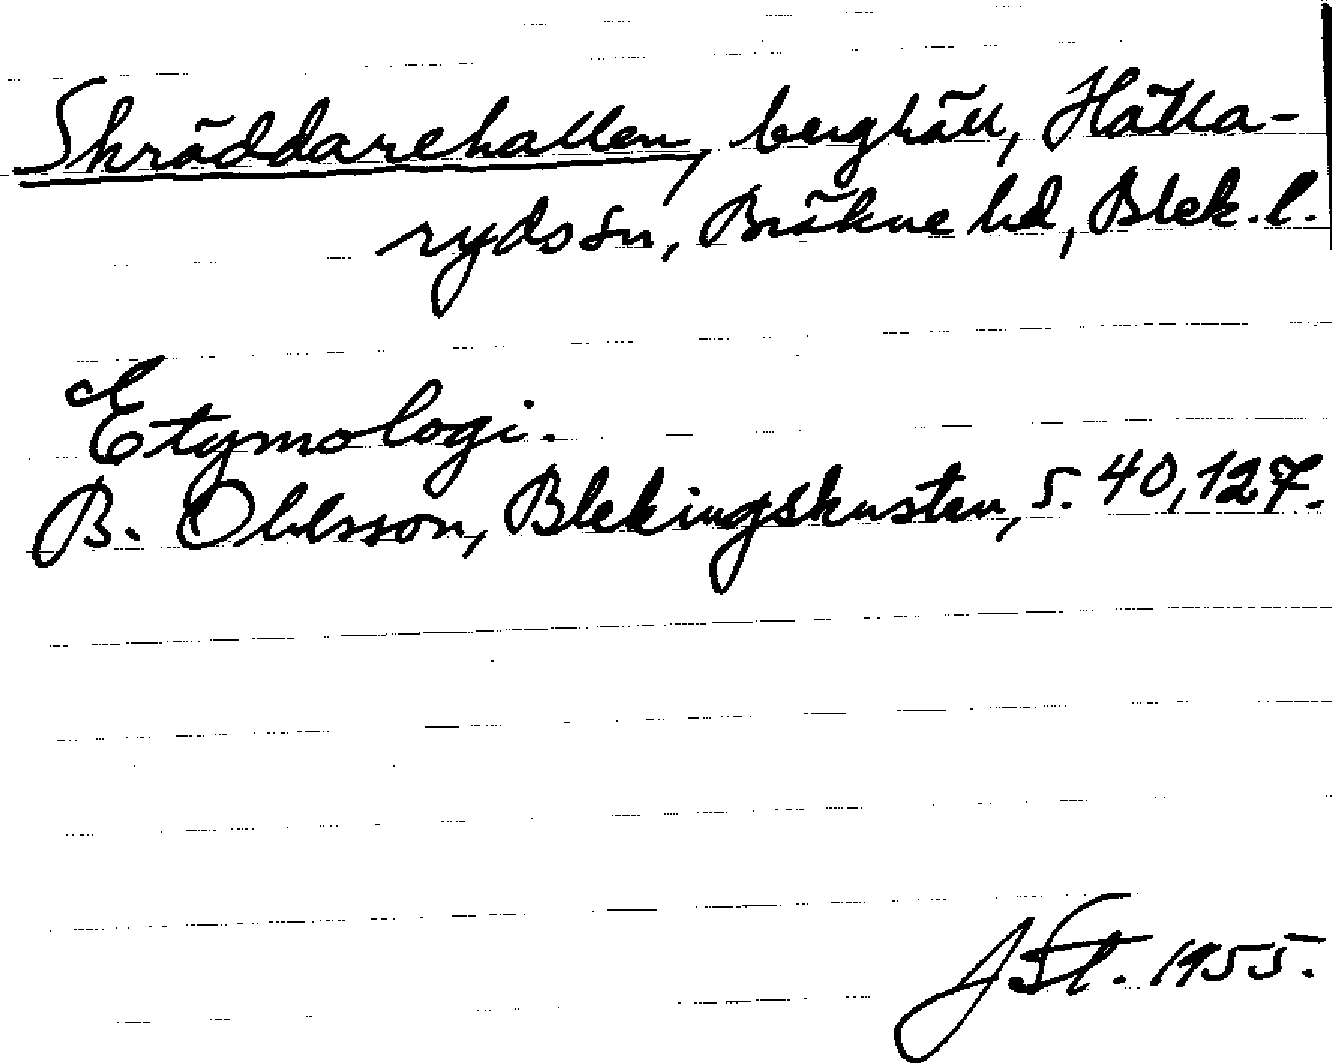 Skräddarehallen, berghäll, Hälla-
ryds sn, Bräkne hd, Blek. l.
Etymologi.
B. Ohlsson, Blekingskusten, s. 40, 127.
JSt. 1955.